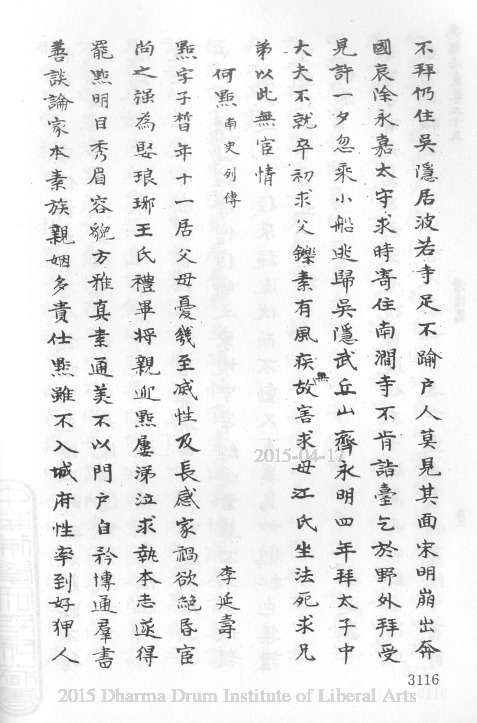 不拜仍住吳隱居波若寺足不踰户人莫見其面宋明崩出奔
國哀除永嘉太守求時寄住南澗寺不肯詣臺乞於野外拜受
見許一夕忽乘小船逃歸吳隱武丘山齊永明四年拜太子中
大夫不就卒初求父鑠素有風疾故無害求母江氏坐法死求兄
弟以此無宦情
何㸃 南史列傳 李延壽
㸃字子晳年十一居父母憂幾至滅性及長感家禍欲絶昏宦
尚之强為娶琅琊王氏禮畢將親迎㸃屢涕泣求執本志遂得
罷㸃明目秀眉容貌方雅真素通美不以門户自矜博通羣書
善談論家本素族親姻多貴仕㸃雖不入城府性率到好狎人
2015-04-17
3116
2015 Dharma Drum Institute of Liberal Arts